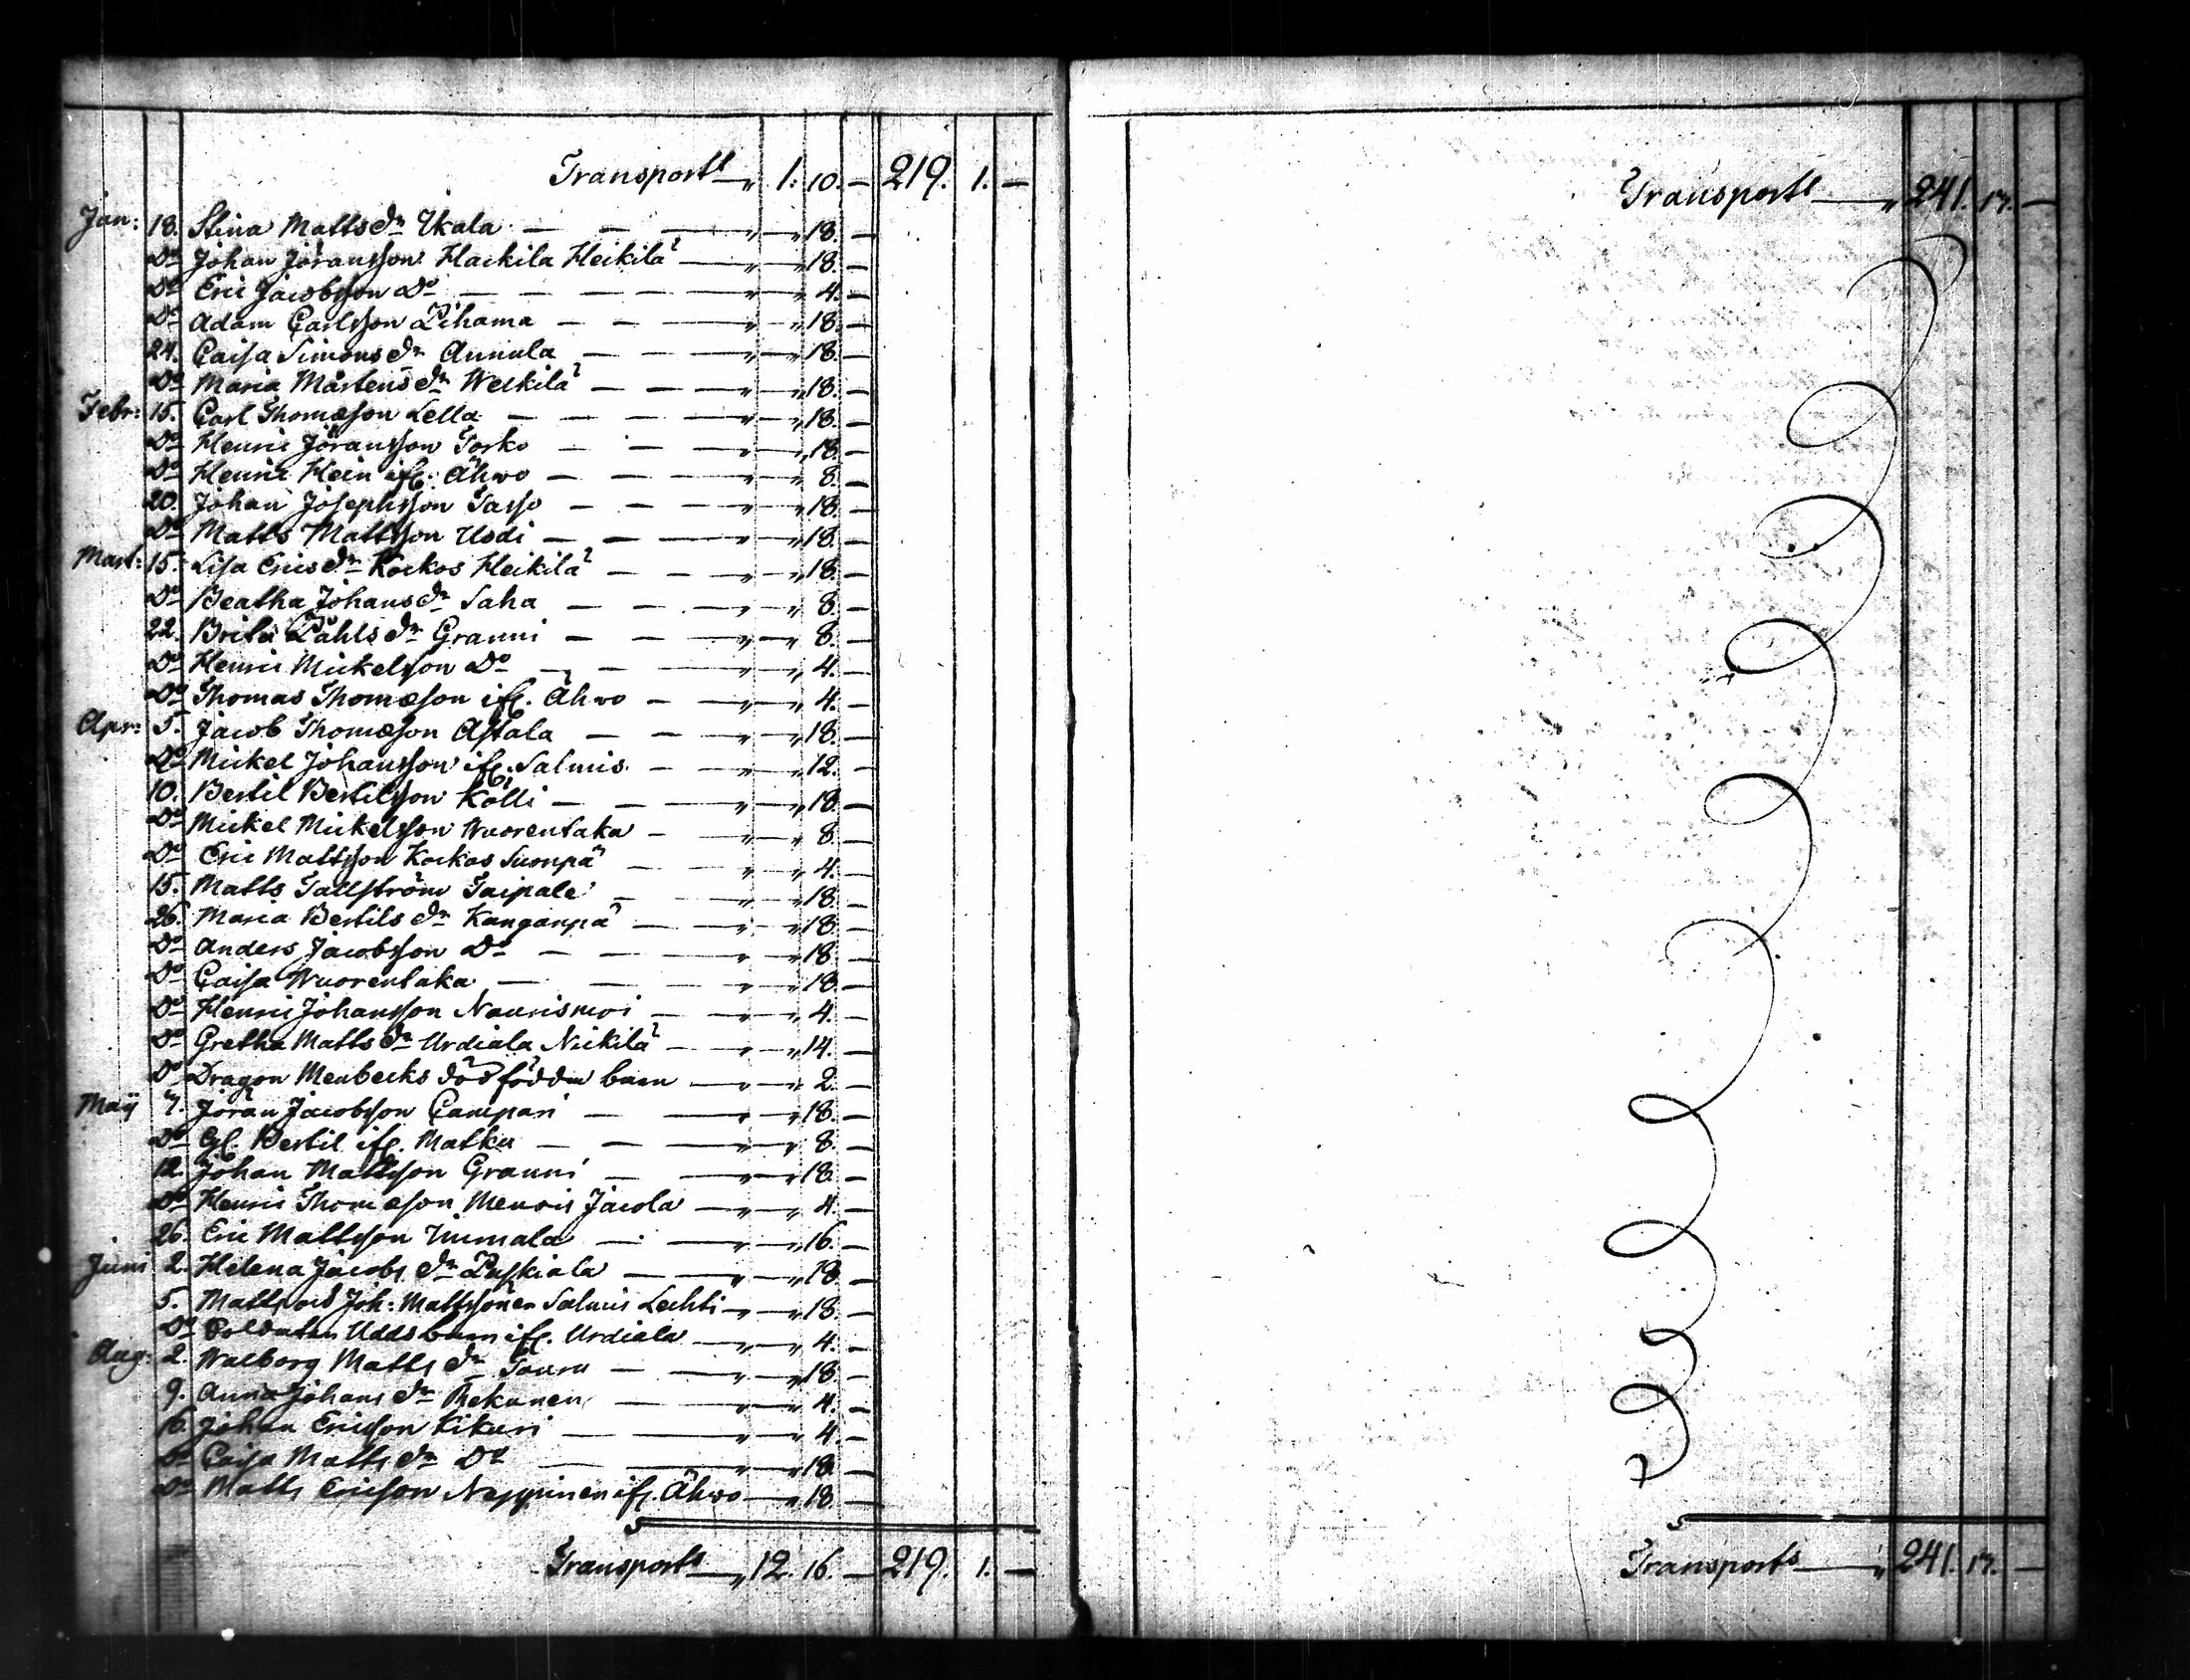 Transport „ 1. 10. — 219. 1. —
Jan: 18. Stina Matts dr Ukala — „ — „ 18. —
Do Johan Jöransson Hackila Heikilä — „ — „ 18. —
Do Eric Jacobsson Do — „ — „ 4. —
Do Adam Carlsson Pihama — „ — „ 18. —
24. Caisa Simons dr Annula — „ — „ 18. —
Do Maria Mårtens dr Weikilä — „ — „ 18. —
Febr: 15. Carl Thomæson Lella — „ — „ 18. —
Do Henric Jöransson Torko — „ — „ 18. —
Do Henric Hein ifr. Ähwo — „ — „ 8. —
20. Johan Josephsson Sasso — „ — „ 18. —
Do Matts Mattsson Usdi — „ — „ 18. —
Mart: 15. Lisa Erics dr Koikos Heikilä — „ — „ 18. —
Do Beatha Johans dr Saha — „ — „ 8. —
22. Brita Påhls dr Granni — „ — „ 8. —
Do Henric Mickelson Do — „ — „ 4. —
Do Thomas Thomæson ifr. Ähwo — „ — „ 4. —
Apr: 5. Jacob Thomæson Astala — „ — „ 18. —
Do Mickel Johansson ifr. Salmis — „ — „ 12. —
10. Bertil Bertilsson Kölli — „ — „ 18. —
Do Mickel Mickelsson Wuorentaka — „ — „ 8. —
Do Eric Mattsson Koikos Suonpä — „ — „ 4. —
15. Matts Tallström Taipale — „ — „ 18. —
26. Maria Bertils dr Kanganpä — „ — „ 18. —
Do Anders Jacobsson Do — „ — „ 18. —
Do Caisa Wuorentaka — „ — „ 18. —
Do Henric Johansson Naurismoi — „ — „ 4. —
Do Gretha Matts dr Urdiala Nickilä — „ — „ 14. —
Do Dragon Menbecks dödfödda barn — „ — „ 2. —
Maij 7. Jöran Jacobsson Campari — „ — „ 18. —
Do Gl. Bertil ifr. Matku — „ — „ 8. —
12. Johan Mattsson Granni — „ — „ 18. —
Do Henric Thomæson Menois Jacola — „ — „ 4. —
26. Eric Mattsson — „ — „ 16. —
Juni 2. Helena Jacobs dr Puskiala — „ — „ 18. —
5. Matts och Joh: Mattssöner Salmis Lechti — „ — „ 18. —
Do Soldaten Udds barn ifr. Urdiala — „ — „ 4. —
Aug: 2. Walborg Matts dr Tauru — „ — „ 18. —
9. Anna Johans dr Rekunen — „ — „ 4. —
16. Johan Ericsson Kikuri — „ — „ 4. —
Do Caisa Matts dr Do — „ — „ 18. —
Do Matts Ericson Neppinen ifr. Ähwo — „ 18. —
Transport „ 12. 16. — 219. 1. —
Transport „ 241. 17. —
Transport „ 241. 17. —